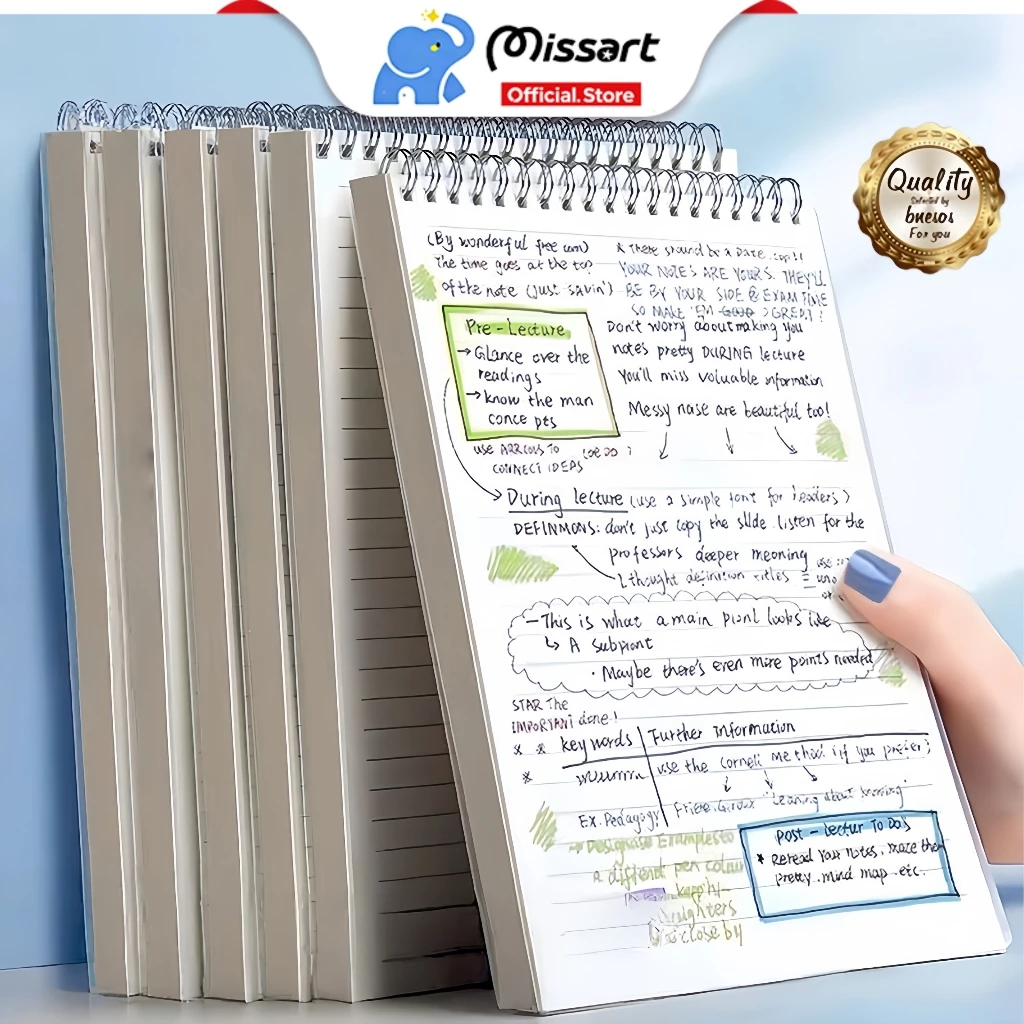 Missart
Official.Store
Quality
Selected by
For you
(By wonderful free
The time goes at the top
of the note (just savin')
& There should be a Date
YOUR NOTES ARE YOURS. THEY'LL
BE BY YOUR SIDE @ EXAM TIME
SO MAKE 'EM GOOD GREAT!
Pre-Lecture
→ Glance over the
readings
→ know the man
conce pts
Don't worry about making you
notes pretty DURING lecture
You'll miss valuable information
Messy nase are beautiful too!
use ARROWS TO
CONNECT IDEAS
During lecture (use a simple font for headers)
DEFINMONS: don't just copy the slide. listen for the
professors deeper meoning
thought definition titles
- This is what a main Point looks like
↳ A subpiont
· Maybe there's even more points needed
STAR The
IMPORTANT done!
* * key words
Further Information
*
use the Corneli method (if you prefer)
Ex. Pedagogy
"Leaning about knowing
→ Designase Examplesto
a differend pen colour
close by
post - Lectur To Do's
* Reread Your notes, make them
pretty. mind map. etc.